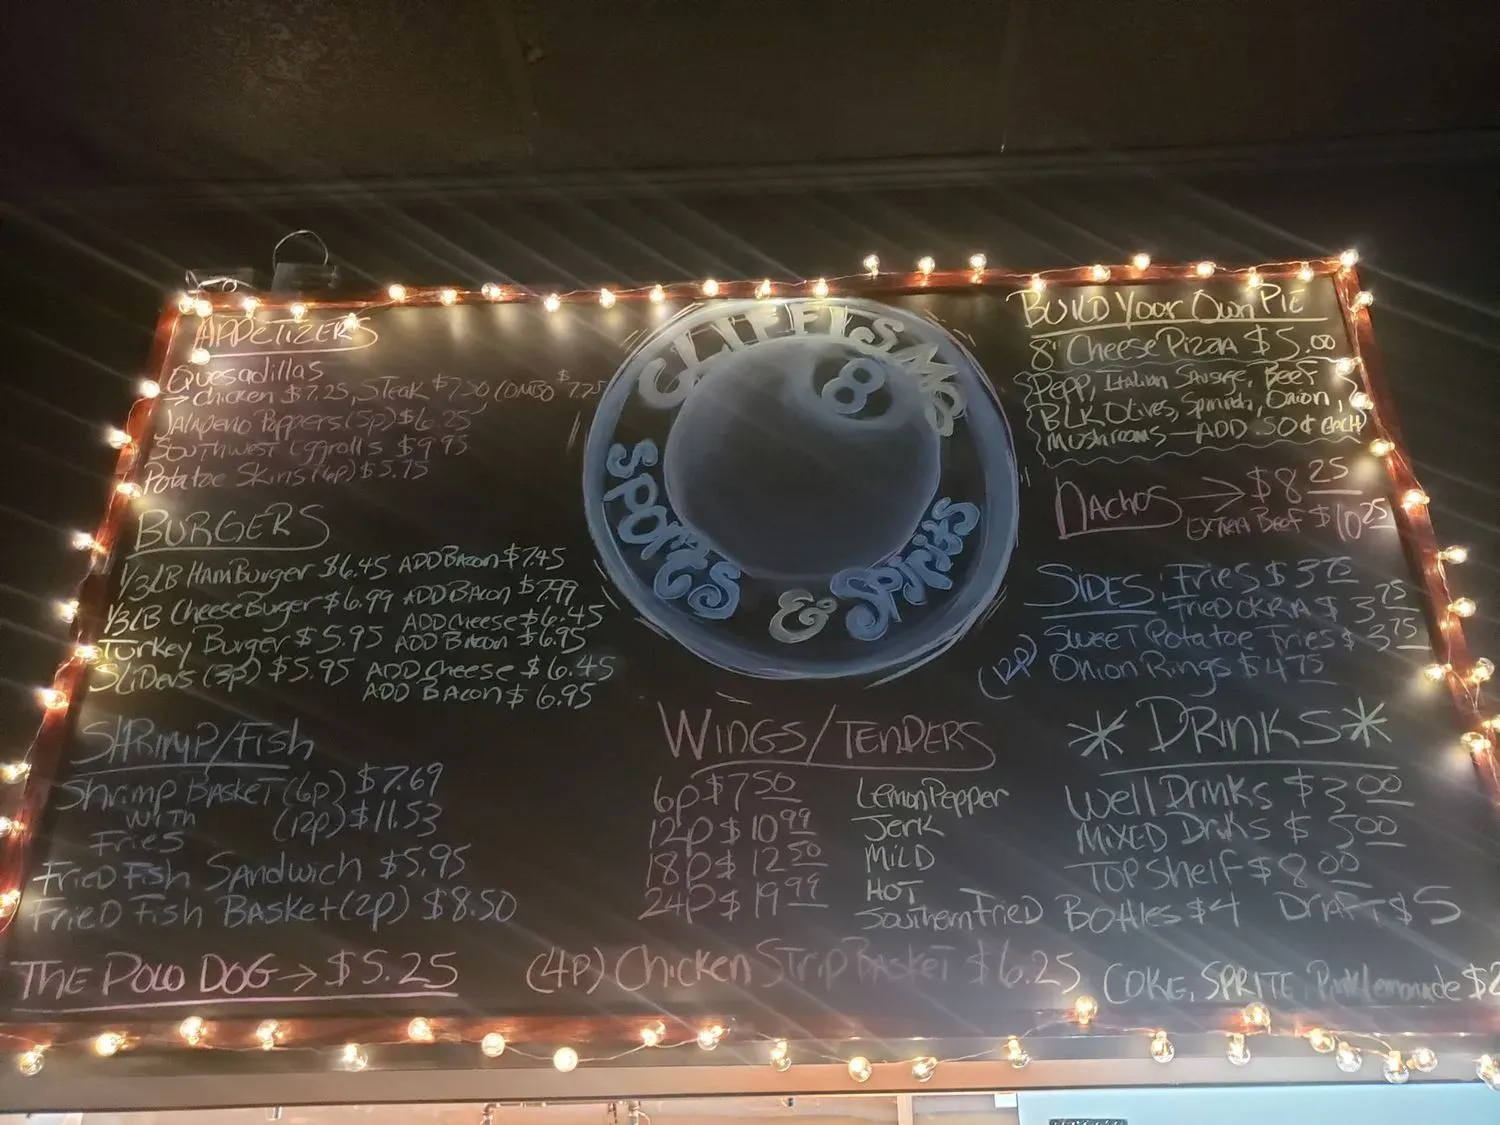 APPETIZERS
Quesadillas
→ Chicken $7.25, STEAK $7.50 COMBO $7.75
Jalapeno Poppers (5p) $6.25
Southwest Eggrolls $9.95
Potatoe Skins (4p) $5.75
BURGERS
1/3LB HamBurger $6.45 ADD Bacon $7.45
1/3LB CheeseBurger $6.99 ADD BAcon $7.99
ADD cheese $6.45
Turkey Burger $5.95 ADD Bacon $6.95
SLiDers (3p) $5.95 ADD cheese $6.45
ADD BAcon $6.95
SHRIMP/FISH
Shrimp BASKET (6p) $7.69
WITH (12p) $11.53
FRIES
FRIED FISH SANDwich $5.95
FRIED FISH BASKet (2p) $8.50
THE POLO DOG → $5.25
8
Sports & Spirits
WINGS/TENDERS
6p $7.50
12p $10.99
18p $12.50
24p $19.99
LemonPepper
Jerk
MiLD
HOT
SouthernFrieD
(4P) Chicken Strip Basket $6.25
BUILD Your Own PIE
8" Cheese Pizza $5.00
Pepp, Italian Sausage, Beef
BLK OLives, Spinach, Onion,
Mushrooms — ADD .50¢ each
NACHOS → $8.25
EXTRA Beef $10.25
SIDES: Fries $3.75
FrieD OKRA $3.75
SweeT Potatoe Fries $3.75
(12p) Onion Rings $4.75
*DRINKS*
Well Drinks $3.00
MIXED Drnks $5.00
TOP Shelf $8.00
BOttles $4 DraFT $5
COKE, SPRITE, Pink Lemonade